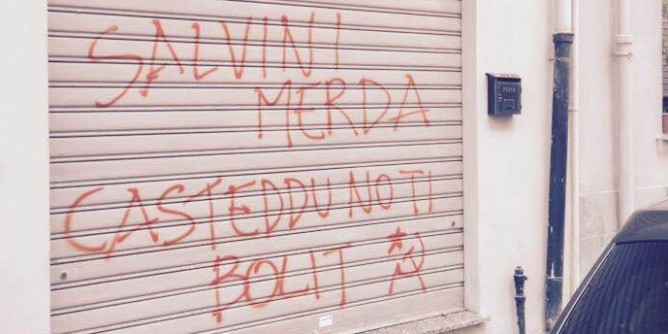 SALVINI
MERDA
CASTEDDU NO TI
BOLIT
POSTA